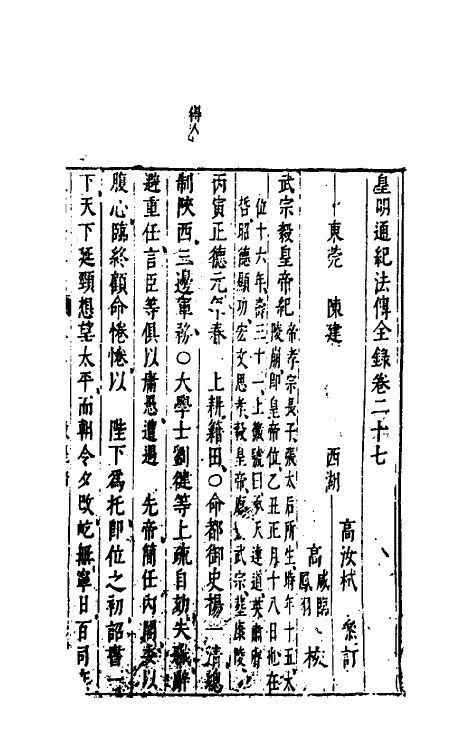 得人
皇明通紀法傳全錄卷二十七
東莞 陳建
西湖 高汝栻 彙訂
高 咸臨 鳳羽 校
武宗毅皇帝紀 帝孝宗長子張太后所生時年十五太
陵崩即皇帝位乙丑正月十八日也在
位十六年壽三十一上徽號曰承天達道英肅睿
哲昭德顯功宏文思孝毅皇帝廟 武宗塟康陵
丙寅正德元年春 上耕籍田○命都御史楊一清總
制陝西三邊軍務○大學士劉健等上疏自劾失職辭
避重任言臣等俱以庸愚遭遇 先帝簡任內閣委以
腹心臨終顧命惓惓以 陛下爲托即位之初詔書一
下天下延頸想望太平而朝令夕改屹無寧日百司